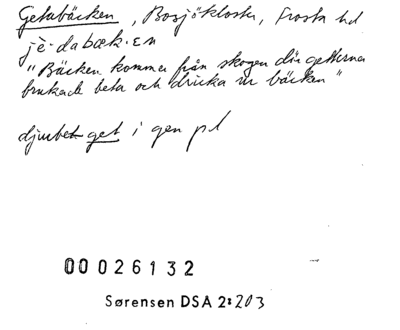 Getabäcken, Bosjökloster, Frosta hd
jè·dabæk·en
"Bäcken kommer från skogen där getterna
brukade beta och dricka ur bäcken"
djurbet get i gen pl
00026132
Sørensen DSA 2:203